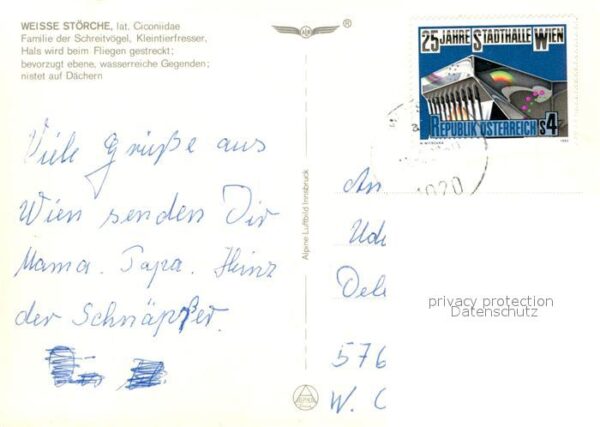 WEISSE STÖRCHE, lat. Ciconiidae
Familie der Schreitvögel, Kleintierfresser,
Hals wird beim Fliegen gestreckt;
bevorzugt ebene, wasserreiche Gegenden;
nistet auf Dächern
®
25 JAHRE STADTHALLE WIEN
REPUBLIK ÖSTERREICH S4
1020
Viele Grüße aus
Wien senden Dir
Mama. Papa. Heinz
der Schnäpper.
Alpine Luftbild Innsbruck
An
Dele
privacy protection
Datenschutz
576
W.